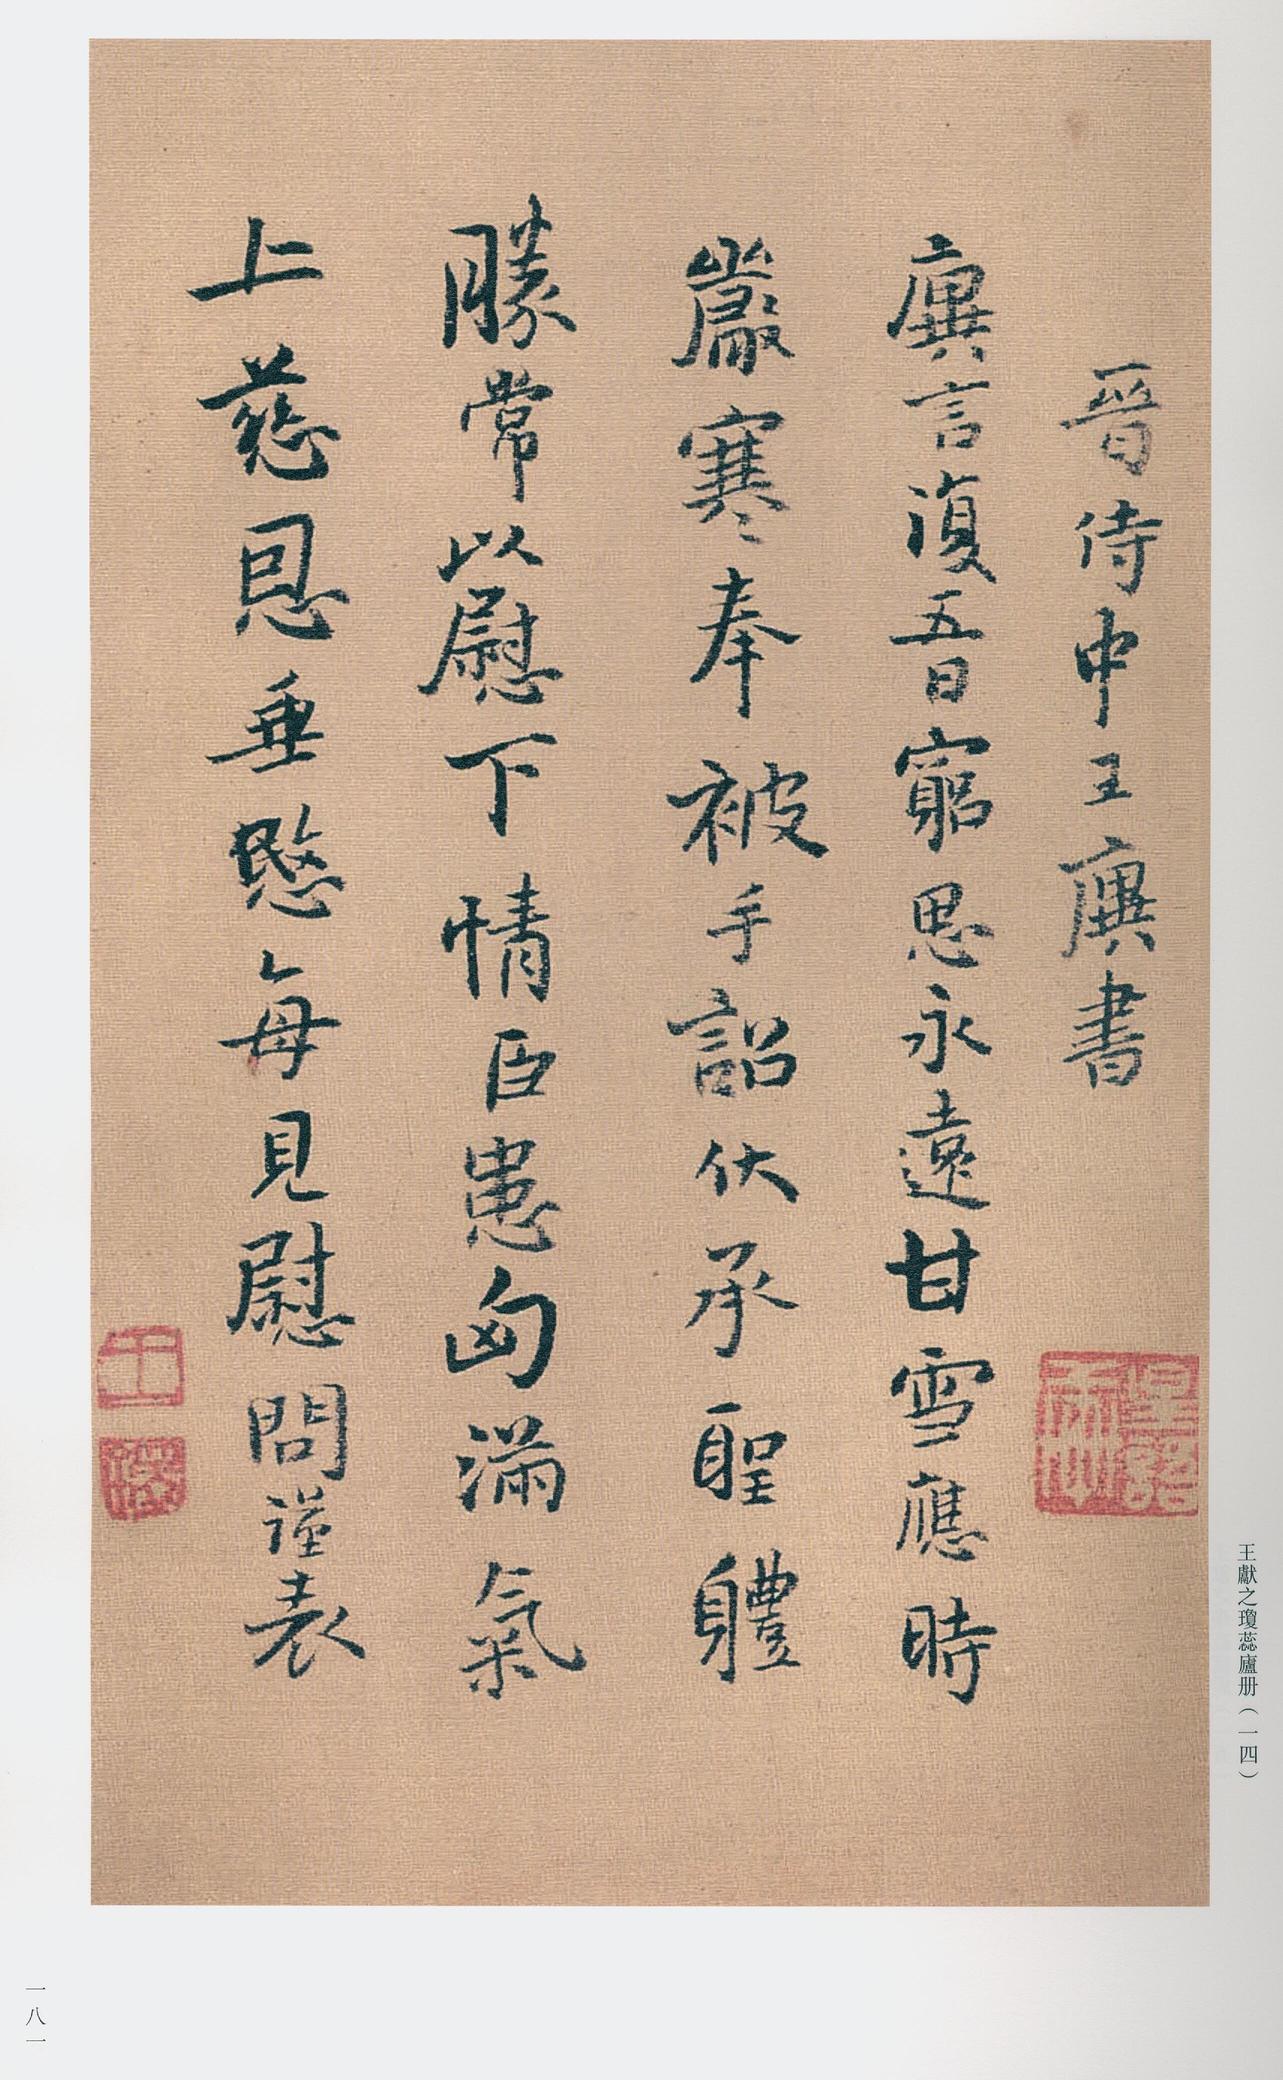 晉侍中王廙書
廙言復五日窮思永遠甘雪應時
嚴寒奉被手詔伏承聖體
勝常以慰下情臣患匈滿氣
上慈恩垂愍每見慰問謹表
王獻之瓊蕊廬册（一四）
一八一